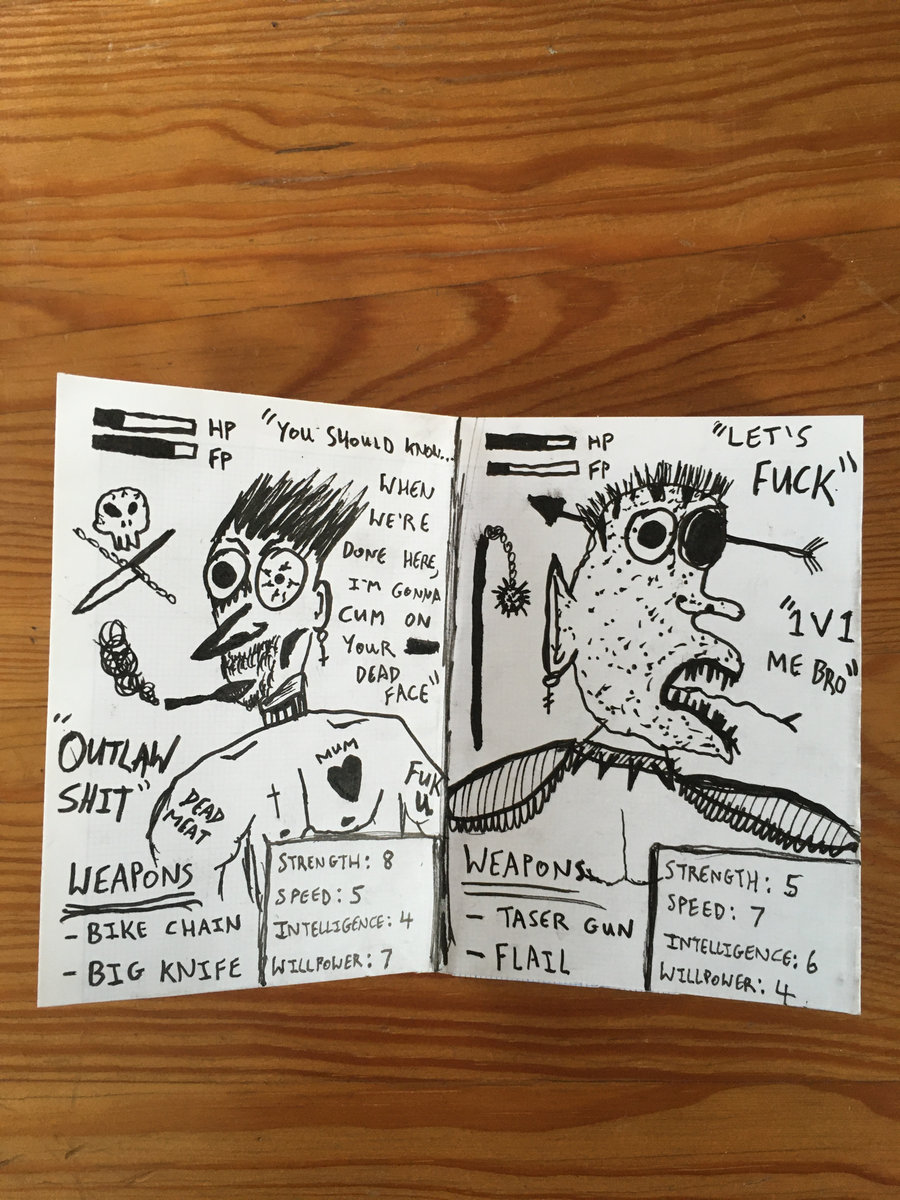 HP
FP
"YOU SHOULD KNOW...
WHEN
WE'RE
DONE HERE,
I'M GONNA
CUM ON
YOUR
DEAD
FACE"
"OUTLAW
SHIT"
MUM
DEAD
MEAT
FUK
U
WEAPONS
- BIKE CHAIN
- BIG KNIFE
STRENGTH: 8
SPEED: 5
INTELLIGENCE: 4
WILLPOWER: 7
HP
FP
"LET'S
FUCK"
"1V1
ME BRO"
WEAPONS
- TASER GUN
- FLAIL
STRENGTH: 5
SPEED: 7
INTELLIGENCE: 6
WILLPOWER: 4